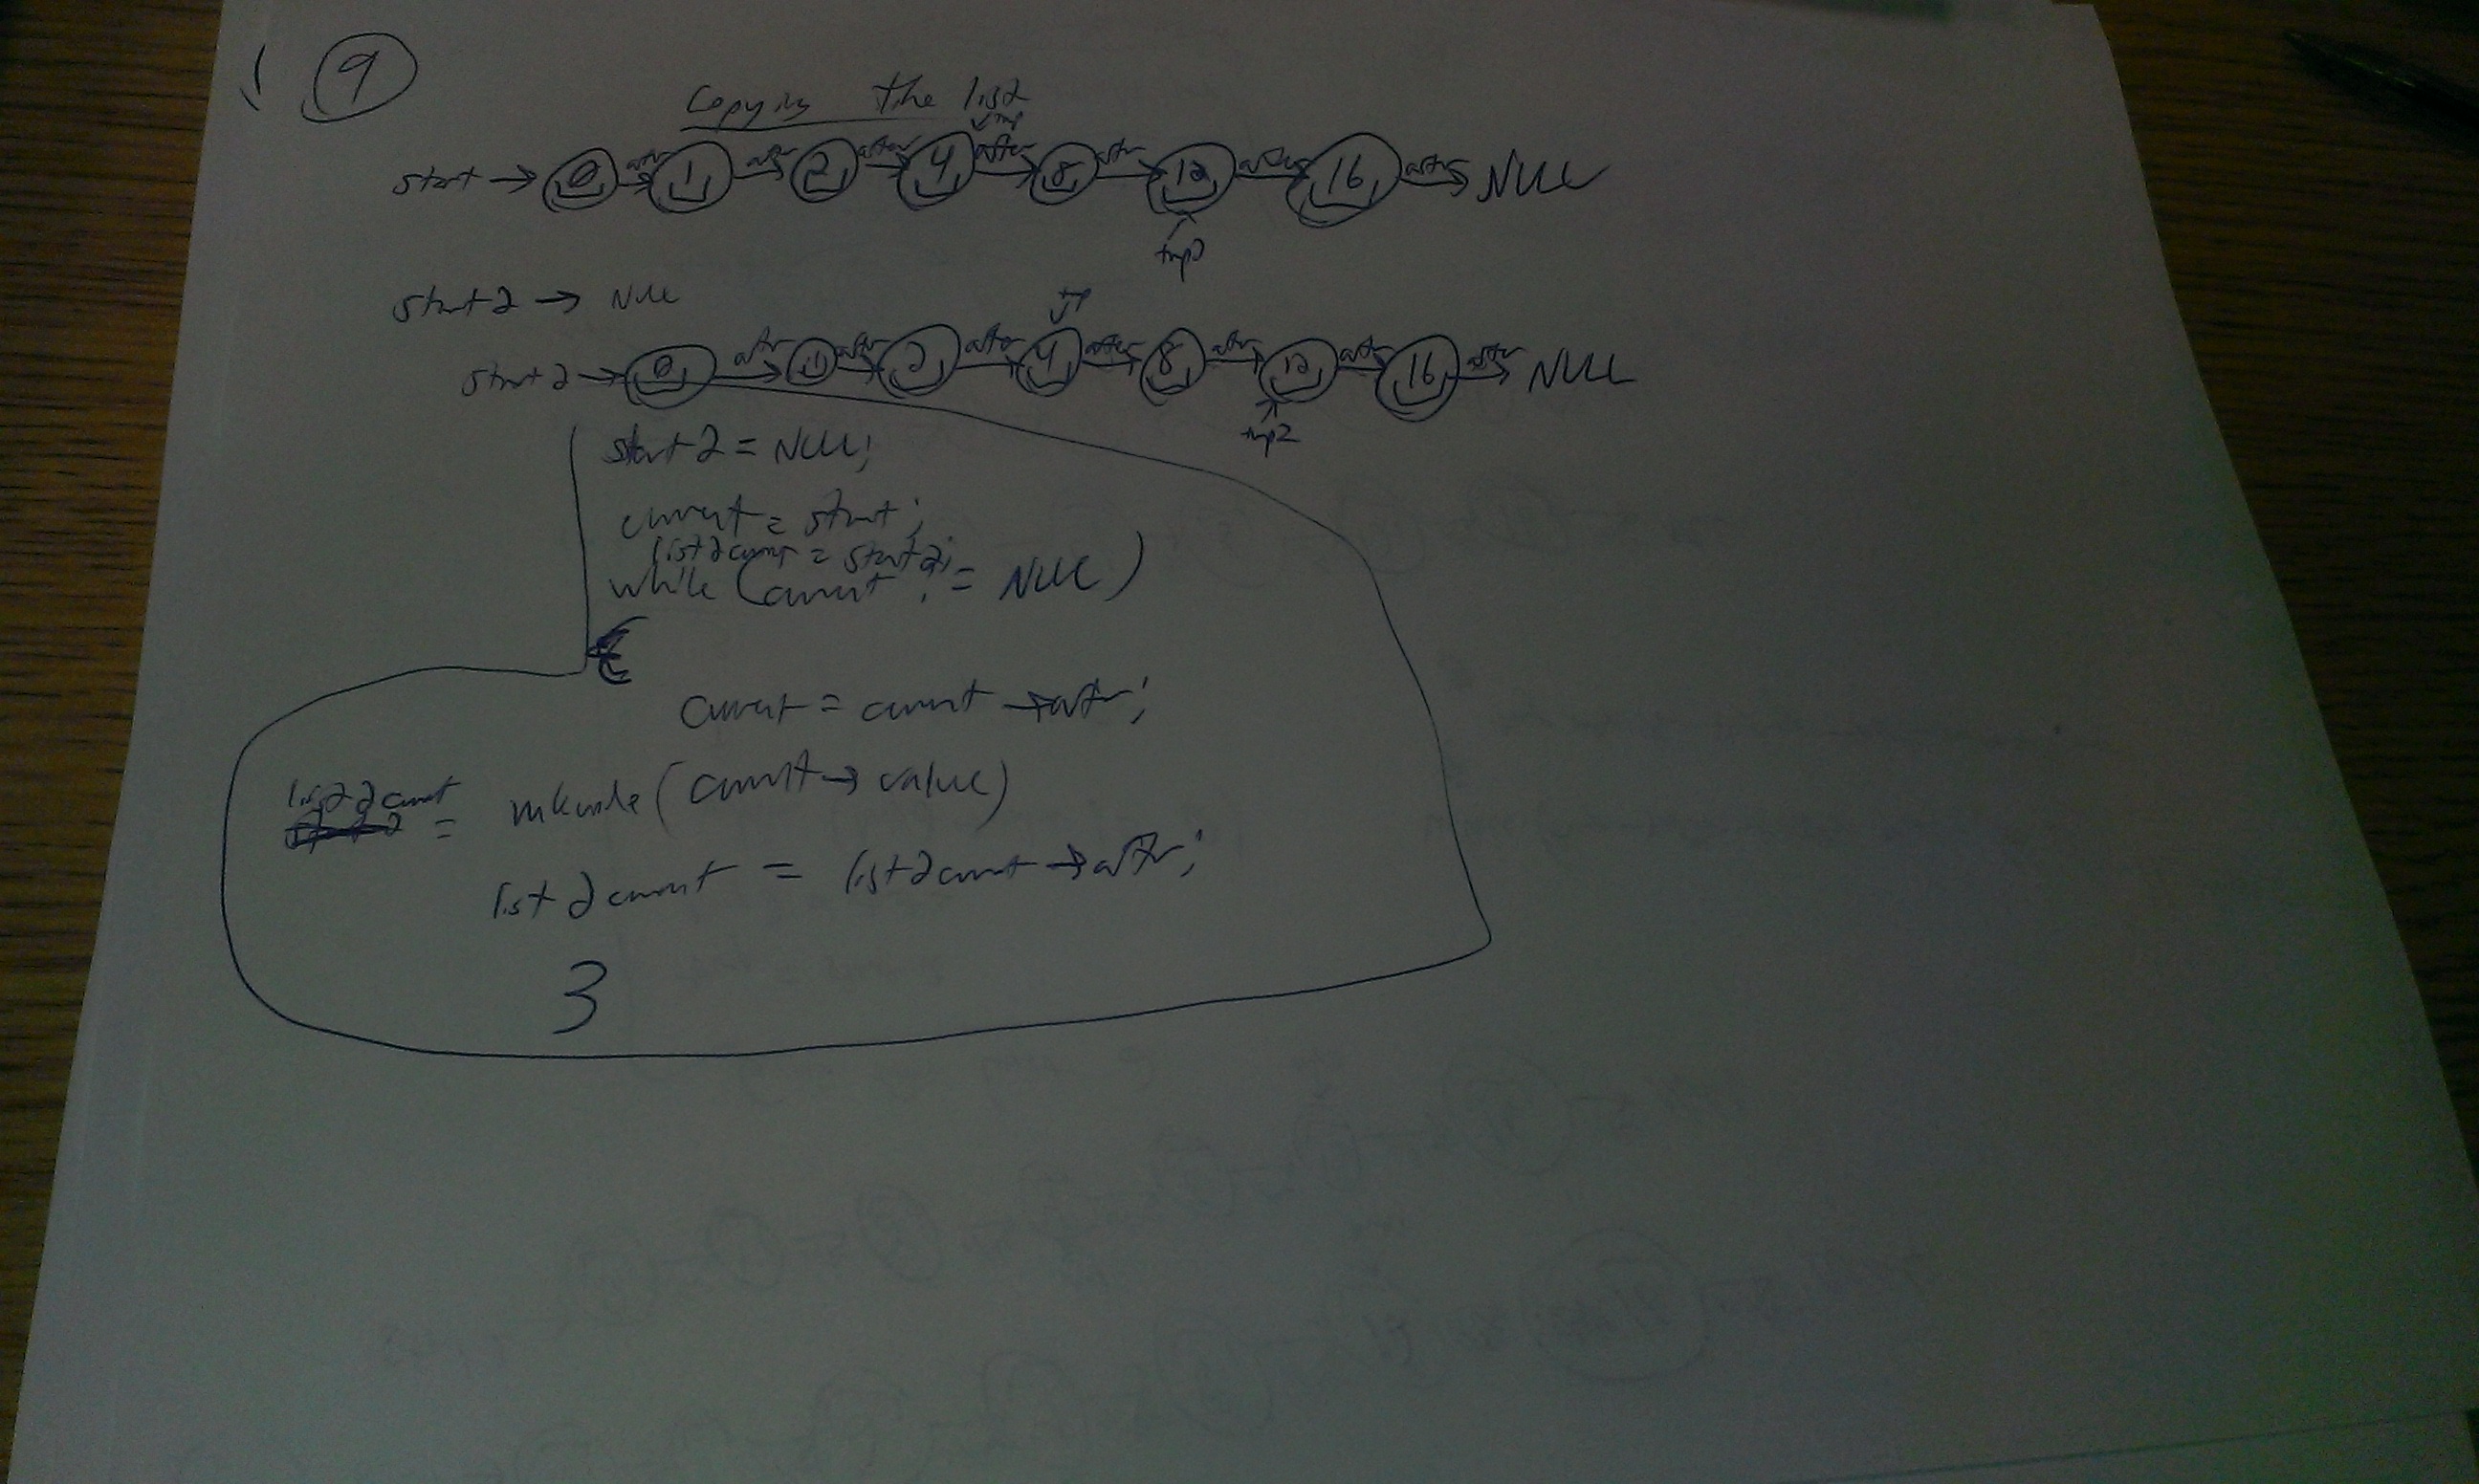 9
Copying the list
tmp
start → 0 after 1 after 2 after 4 after 8 after 12 after 16 after NULL
tmp
start2 → NULL
start2 → 0 after 1 after 2 after 4 after 8 after 12 after 16 after NULL
tmp2
start2 = NULL;
current = start;
list2current = start2;
while (current != NULL)
{
current = current → after;
list2current = mknode (current → value)
list2current = list2current → after;
}